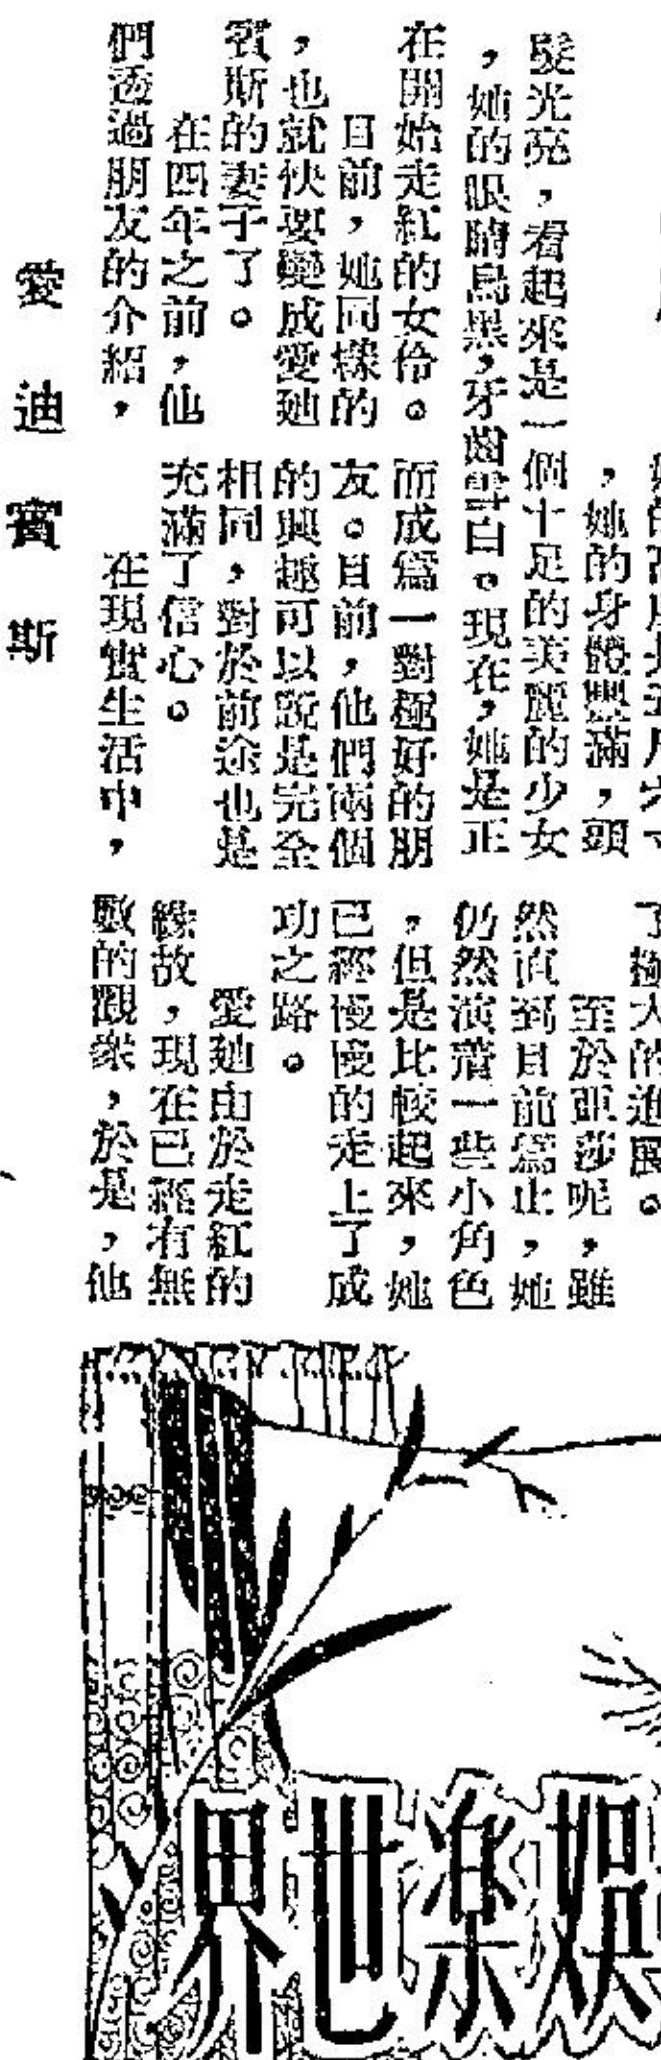 ,她的身體豐滿,頭
髮光亮,看起來是一個十足的美麗的少女
,她的眼睛烏黑,牙齒雪白。現在,她是正
在開始走紅的女伶。
目前,她同樣的
,也就快要變成愛廸
賓斯的妻子了。
在四年之前,他
們透過朋友的介紹,
而成為一對極好的朋
友。目前,他們兩個
的興趣可以說是完全
相同,對於前途也是
充滿了信心。
在現實生活中,
了極大的進展。
至於亞莎呢,雖
然直到目前為止,她
仍然演着一些小角色
,但是比較起來,她
已經慢慢的走上了成
功之路。
愛廸由於走紅的
緣故,現在已經有無
數的觀眾,於是,他
愛迪賓斯
娛楽世界